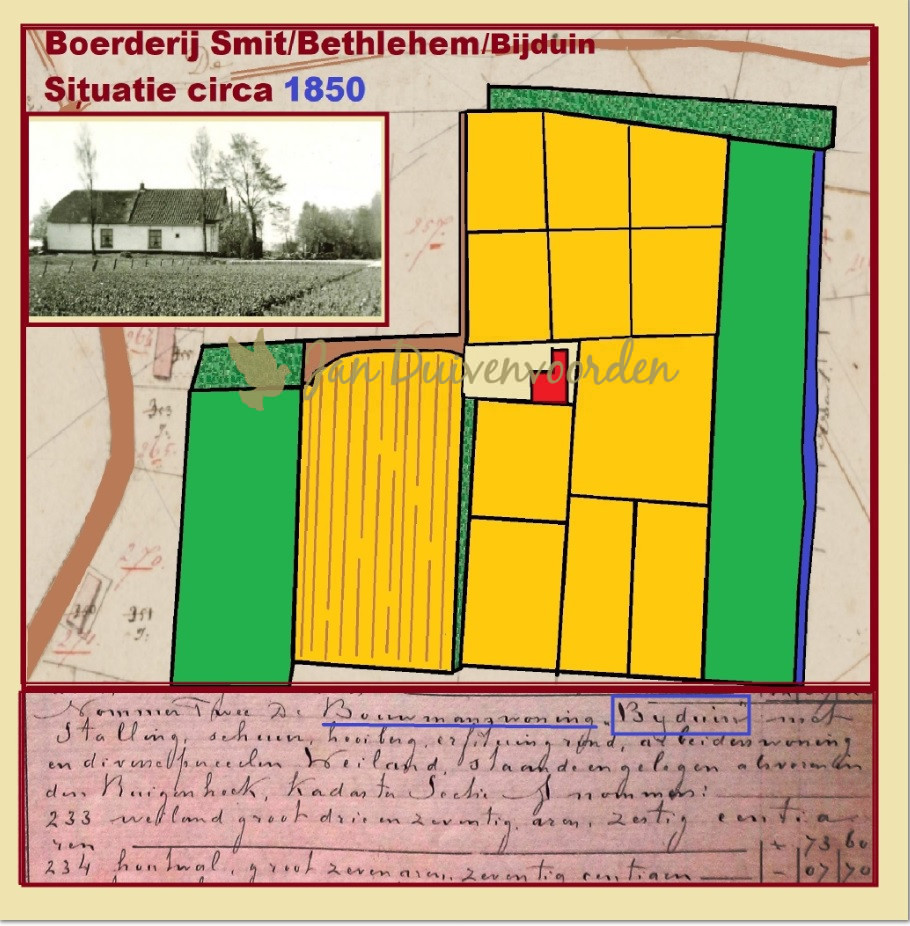 Boerderij Smit/Bethlehem/Bijduin
Situatie circa 1850
Jan Duivenvoorden
Nommer Twee De Bouwmanswoning "Byduin" met
Stalling, schuur, hooiberg, erf, tuingrond, arbeiderswoning
en diverse perceelen Weiland, staande en gelegen alsvoren in
den Ruigenhoek, Kadaster Sectie nommers:
233 weiland groot drie en zeventig aren, zestig centia
ren 73 60
234 houtwal, groot zeven aren, zeventig centiaren 07 70